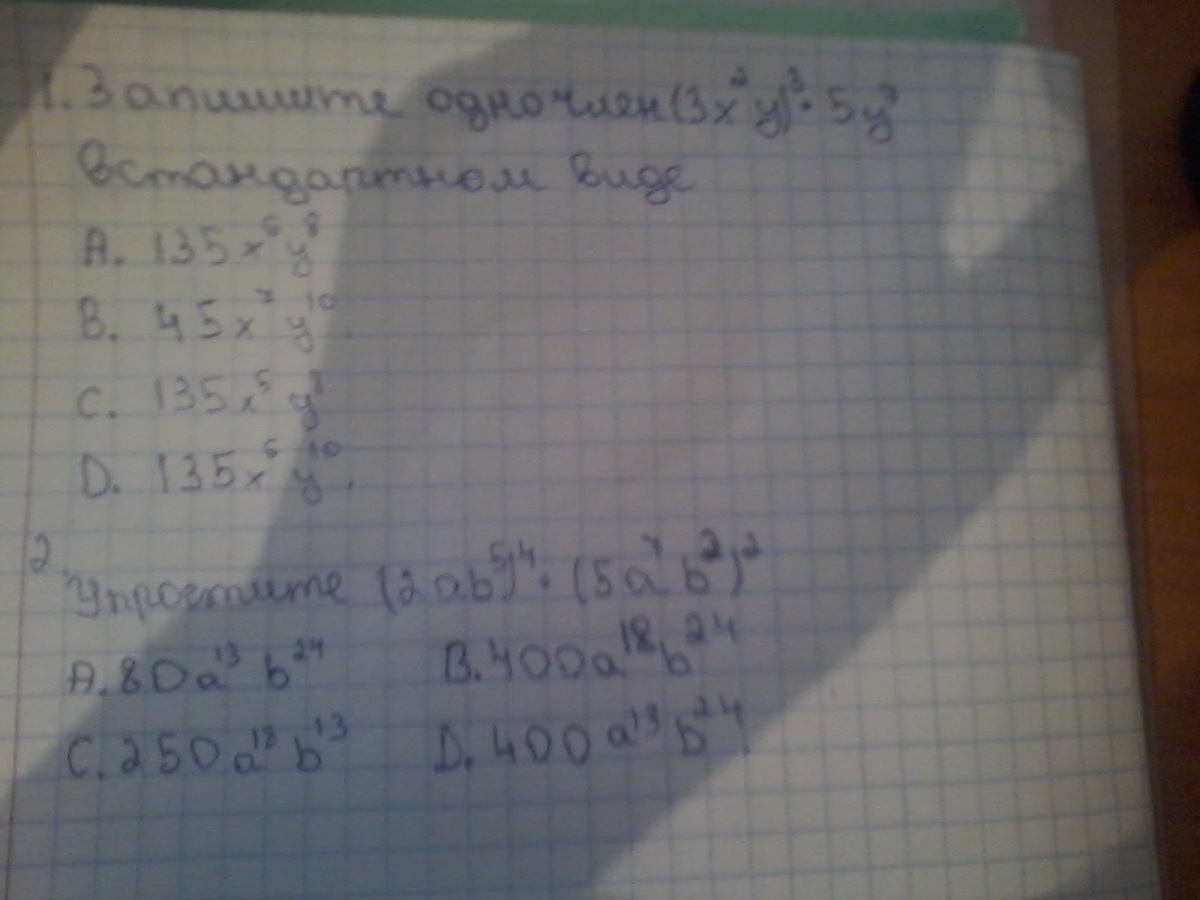 1. Запишите одночлен (3x²y)³·5y⁷
в стандартном виде
A. 135x⁶y⁸
B. 45x⁷y¹⁰.
C. 135x⁵y⁸
D. 135x⁶y¹⁰.
2. Упростите (2ab⁵)⁴·(5a⁷b²)²
A. 80a¹³b²⁴ B. 400a¹⁸b²⁴
C. 250a¹⁸b¹³ D. 400a¹³b²⁴.